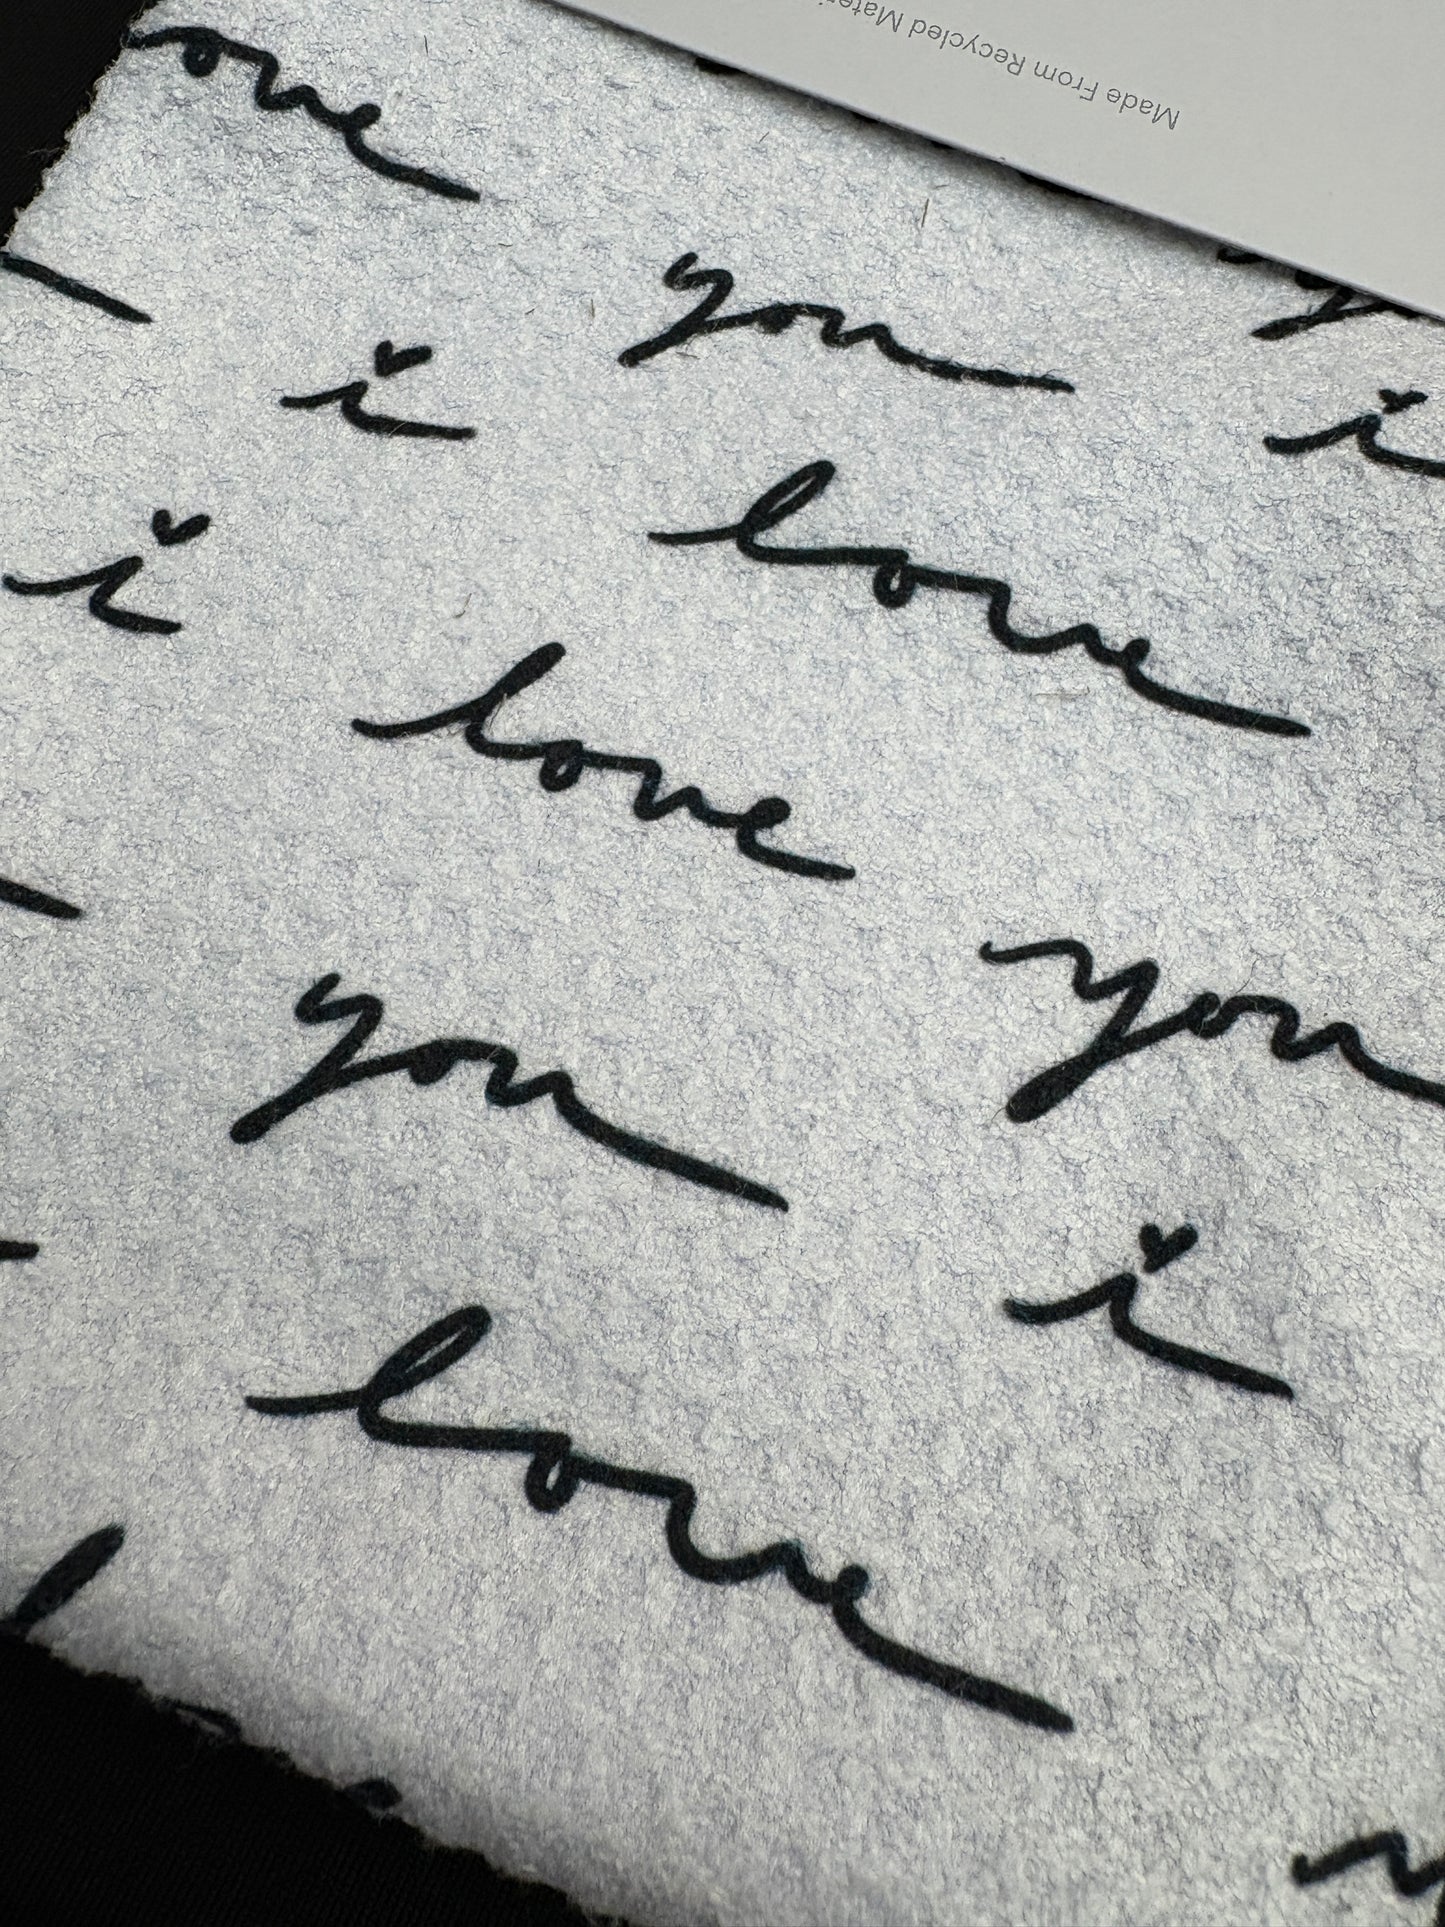 Made From Recycled
love
you
i
i
love
i
love
you
you
i
love